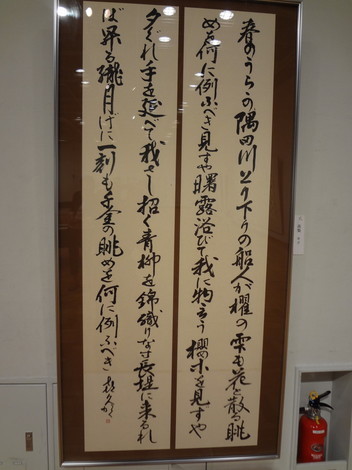 春のうらゝの隅田川上り下りの船人が櫂の雫も花と散る眺
めを何に例ふべき見ずや曙露浴びて我に物言う櫻木を見ずや
夕ぐれ手を延べて我さし招く青柳を錦織りなす長堤に来るれ
ば昇る朧月げに一刻も千金の眺めを何に例ふべき